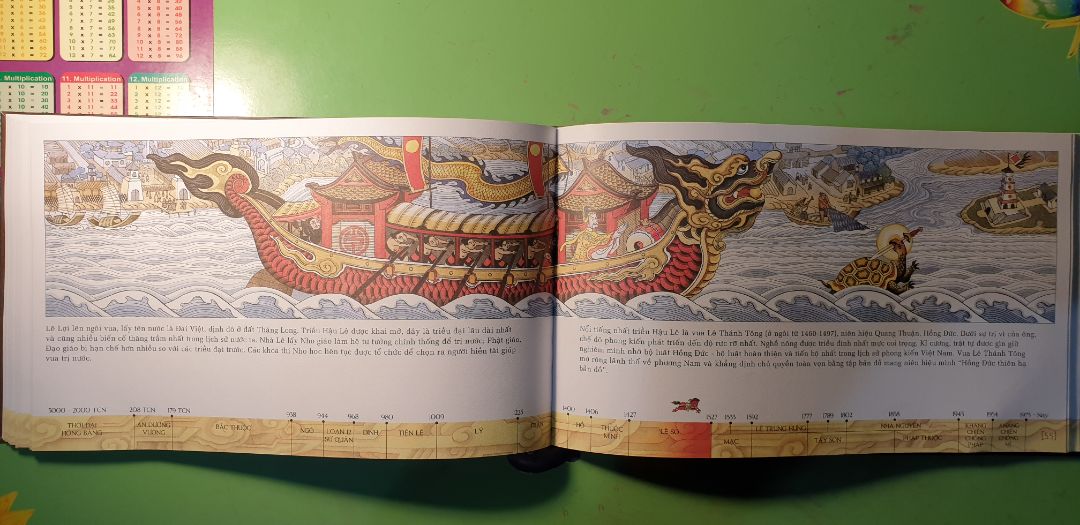 11. Multiplication
12. Multiplication
Lê Lợi lên ngôi vua, lấy tên nước là Đại Việt, định đô ở đất Thăng Long. Triều Hậu Lê được khai mở, đây là triều đại lâu dài nhất
và cũng nhiều biến cố thăng trầm nhất trong lịch sử nước ta. Nhà Lê lấy Nho giáo làm hệ tư tưởng chính thống để trị nước; Phật giáo,
Đạo giáo bị hạn chế hơn nhiều so với các triều đại trước. Các khoa thi Nho học liên tục được tổ chức để chọn ra người hiền tài giúp
vua trị nước.
Nổi tiếng nhất triều Hậu Lê là vua Lê Thánh Tông (ở ngôi từ 1460-1497), niên hiệu Quang Thuận, Hồng Đức. Dưới sự trị vì của ông,
chế độ phong kiến phát triển đến độ rực rỡ nhất. Nghề nông được triều đình nhất mực coi trọng. Kỉ cương, trật tự được gìn giữ
nghiêm minh nhờ bộ luật Hồng Đức - bộ luật hoàn thiện và tiến bộ nhất trong lịch sử phong kiến Việt Nam. Vua Lê Thánh Tông
mở rộng lãnh thổ về phương Nam và khẳng định chủ quyền toàn vẹn bằng tập bản đồ mang niên hiệu mình "Hồng Đức thiên hạ
bản đồ".
2000 TCN 208 TCN 179 TCN 938 944 968 980 1009 1225 1400 1406 1427 1527 1533 1592 1777 1789 1802 1858 1945 1954 1975 - Nay
THỜI ĐẠI HỒNG BÀNG
AN DƯƠNG VƯƠNG
BẮC THUỘC
NGÔ
LOẠN 12 SỨ QUÂN
ĐINH
TIỀN LÊ
LÝ
TRẦN
HỒ
THUỘC MINH
LÊ SƠ
MẠC
LÊ TRUNG HƯNG
TÂY SƠN
NHÀ NGUYỄN
PHÁP THUỘC
KHÁNG CHIẾN CHỐNG PHÁP
KHÁNG CHIẾN CHỐNG MỸ
[55]